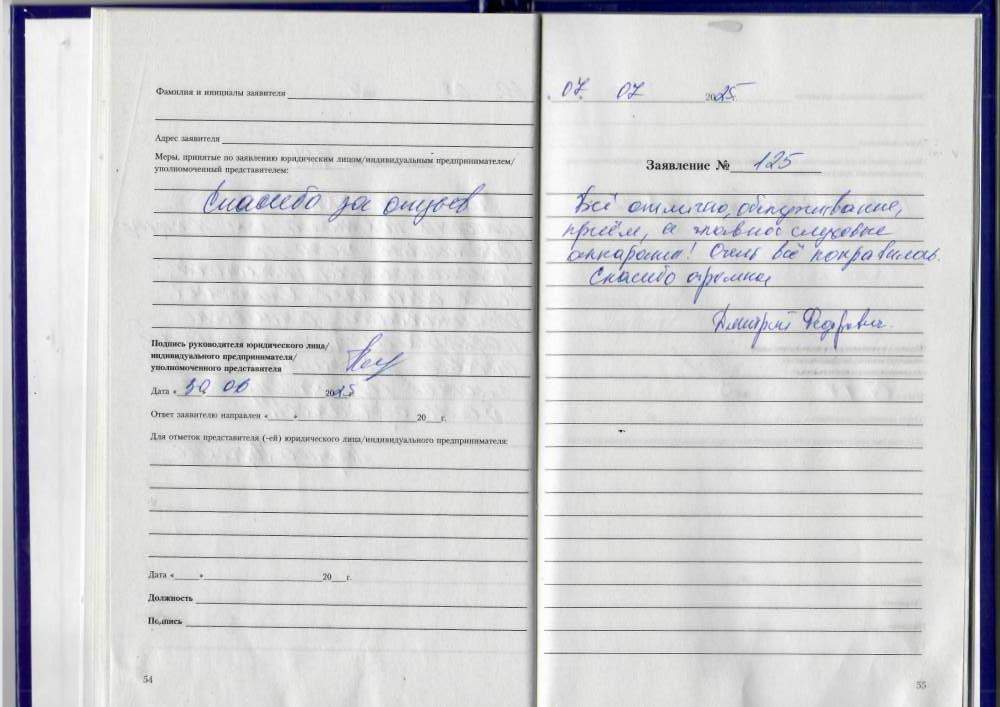 Фамилия и инициалы заявителя
Адрес заявителя
Меры, принятые по заявлению юридическим лицом/индивидуальным предпринимателем/
уполномоченный представителем:
Спасибо за отзыв
Подпись руководителя юридического лица/
индивидуального предпринимателя/
уполномоченного представителя
Дата « 30 06 2025 г.
Ответ заявителю направлен «____» ____ 20__г.
Для отметок представителя (-ей) юридического лица/индивидуального предпринимателя:
Дата «____» ____ 20__г.
Должность
Подпись
54
07 07 2025г.
Заявление № 125
Всё отлично, обслуживание,
приём, а главное слуховые
аппараты! Очень всё понравилось.
Спасибо огромное
Дмитрий Федорович.
55